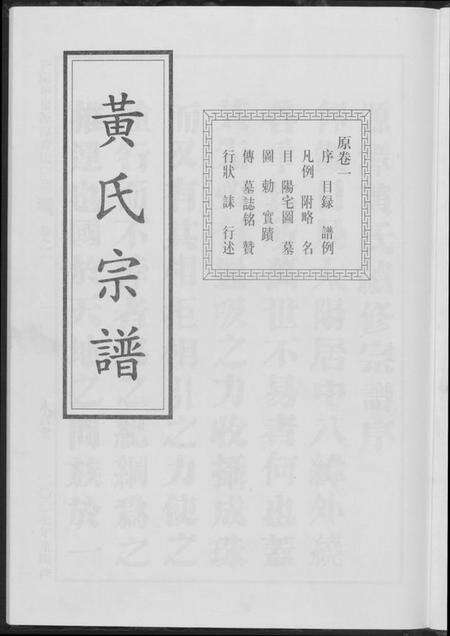 原卷一
序 目録 譜例
凡例 附略 名
目 陽宅圖 墓
圖 勅 實蹟
傳 墓誌铭 贊
行狀 誄 行述
黃氏宗譜